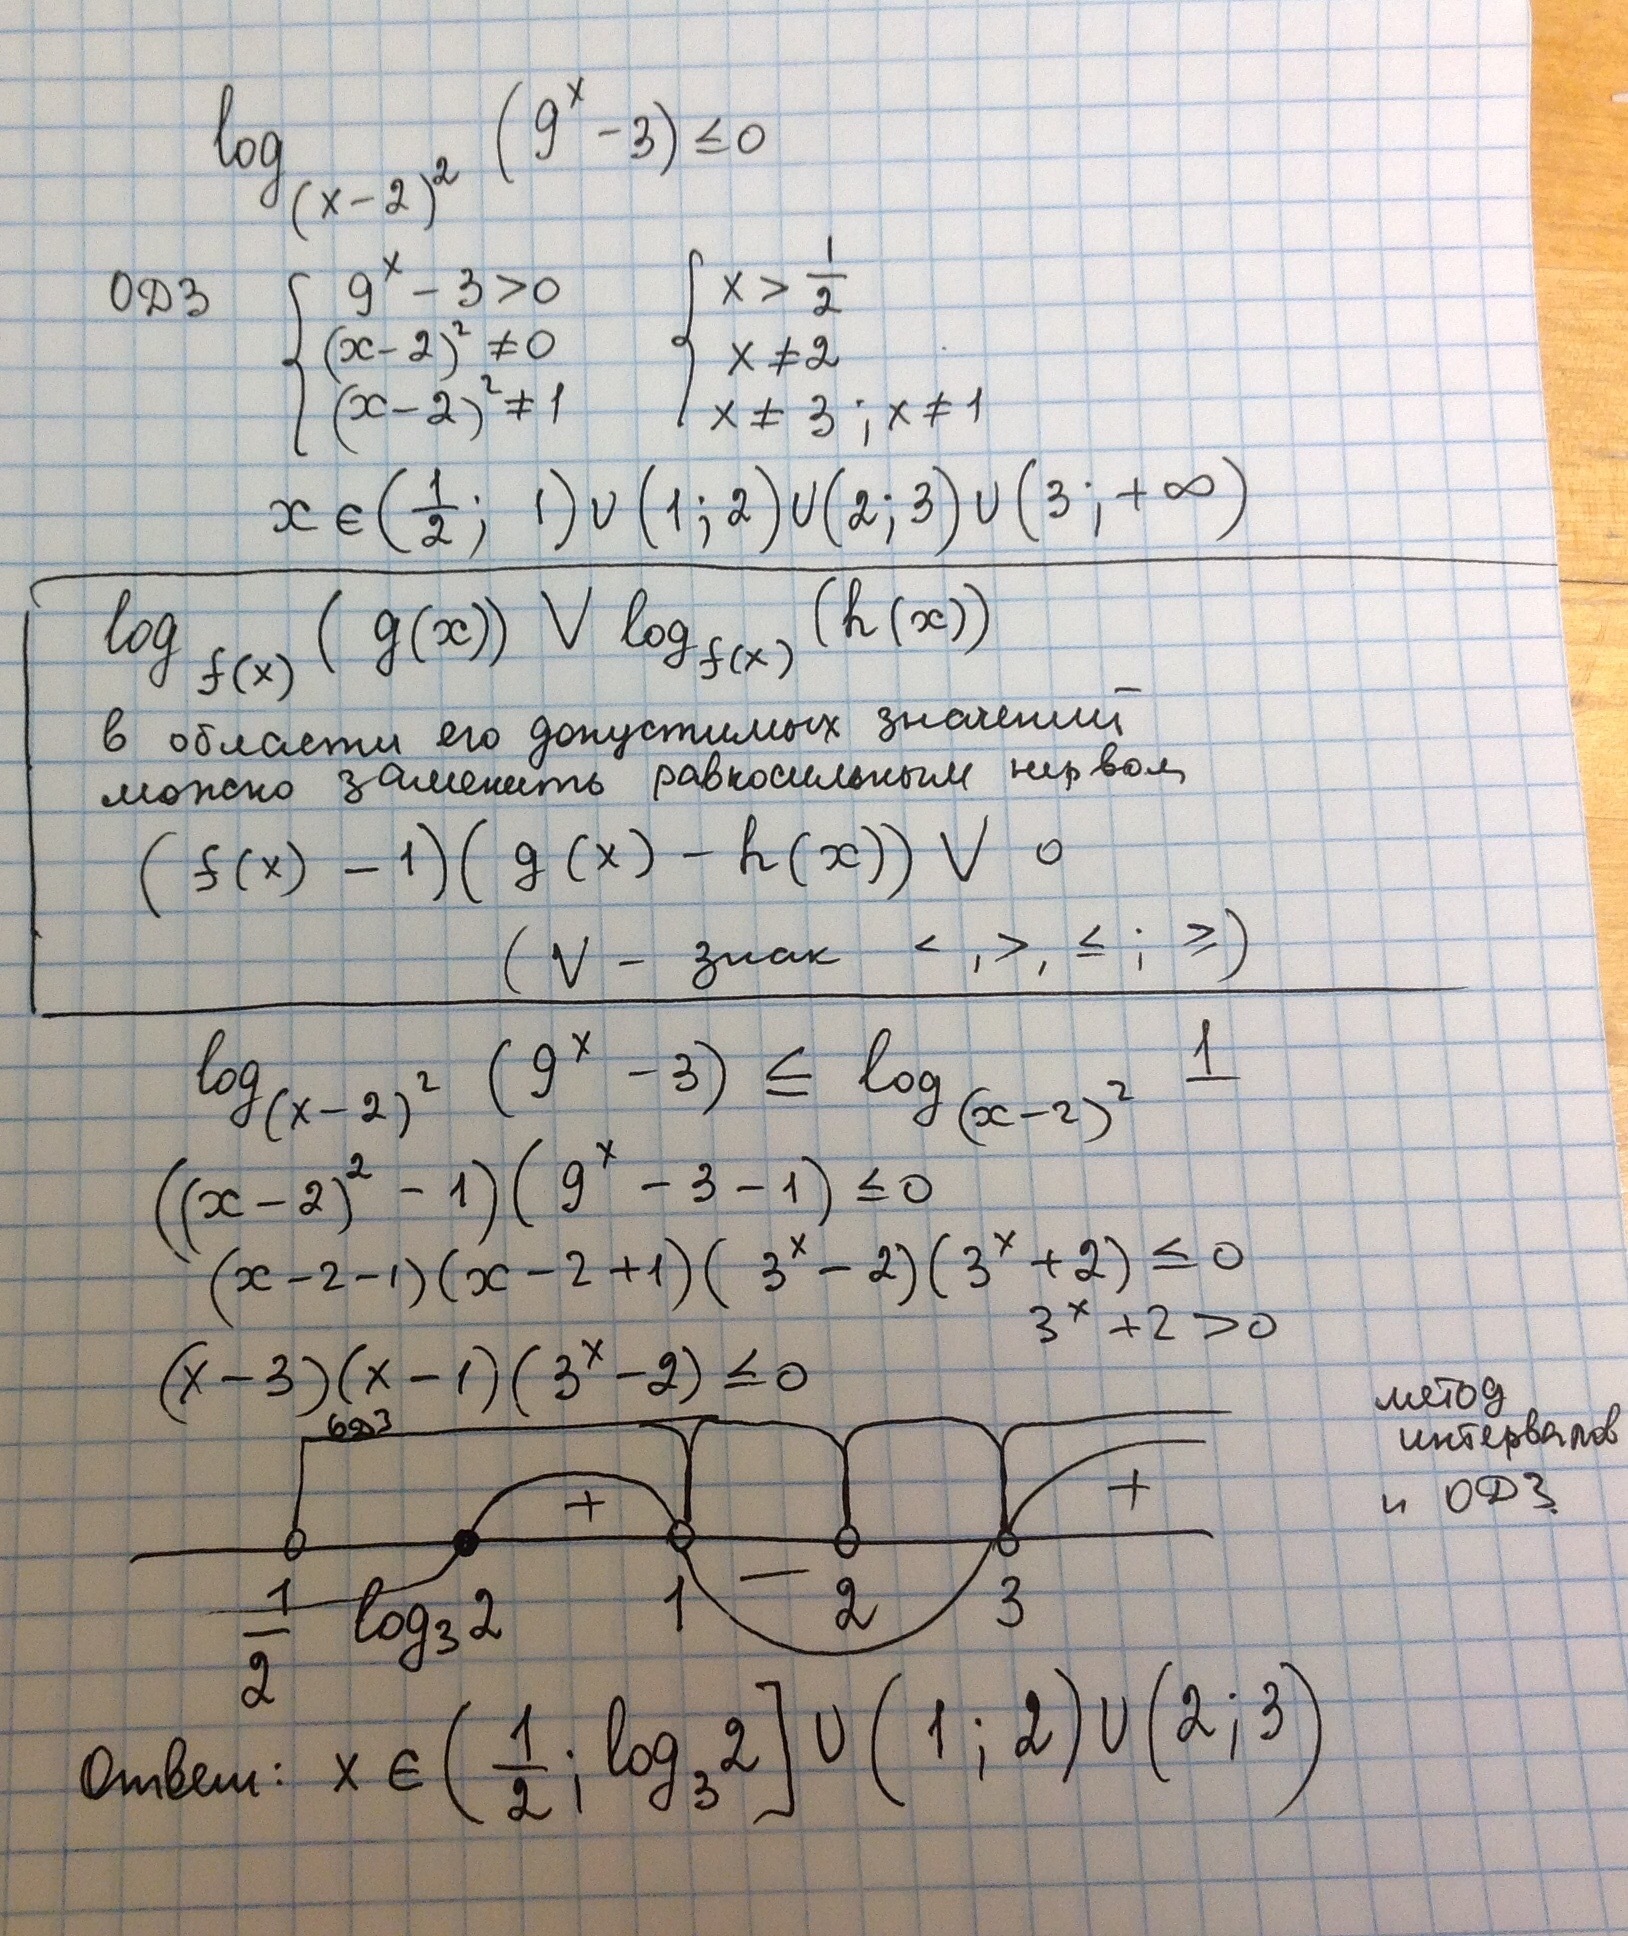 log_{(x-2)^2} (9^x - 3) ≤ 0
ОДЗ { 9^x - 3 > 0 { x > 1/2
(x-2)^2 ≠ 0 x ≠ 2
(x-2)^2 ≠ 1 x ≠ 3 ; x ≠ 1
x ∈ (1/2; 1) ∪ (1; 2) ∪ (2; 3) ∪ (3; +∞)
log_{f(x)} (g(x)) ∨ log_{f(x)} (h(x))
в области его допустимых значений
можно заменить равносильным нервом
(f(x) - 1)(g(x) - h(x)) ∨ 0
(∨ - знак <, >, ≤; ≥)
log_{(x-2)^2} (9^x - 3) ≤ log_{(x-2)^2} 1
((x-2)^2 - 1)(9^x - 3 - 1) ≤ 0
(x-2-1)(x-2+1)(3^x - 2)(3^x + 2) ≤ 0
3^x + 2 > 0
(x-3)(x-1)(3^x - 2) ≤ 0
метод
интервалов
и ОДЗ
ОДЗ
+ - +
1/2 log_3 2 1 2 3
Ответ: x ∈ (1/2; log_3 2] ∪ (1; 2) ∪ (2; 3)